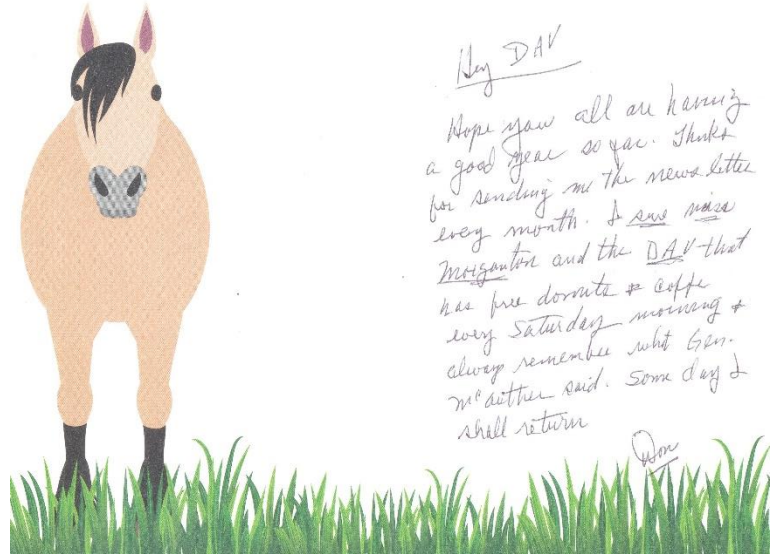 Hey DAV
Hope you all are having
a good year so far. Thnks
for sending me the news letter
every month. I sure miss
Morganton and the DAV that
has free donuts & coffe
every Saturday morning &
always remember what Gen.
McArther said. Some day I
shall return
Don